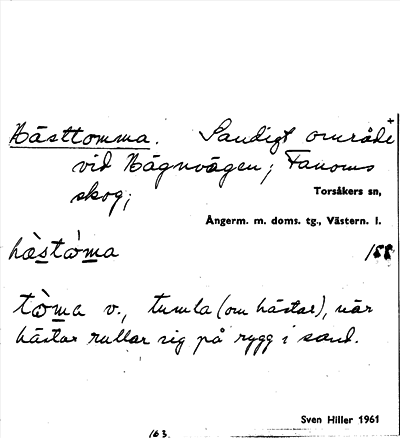 Hästtomma. Sandigt område
vid Hägnvägen; Fanoms
skog;
Torsåkers sn,
Ångerm. m. doms. tg., Västern. l.
hɑ̀stò̀ma
tò̀ma v., tumla (om hästar), när
hästar rullar sig på rygg i sand.
Sven Hiller 1961
163